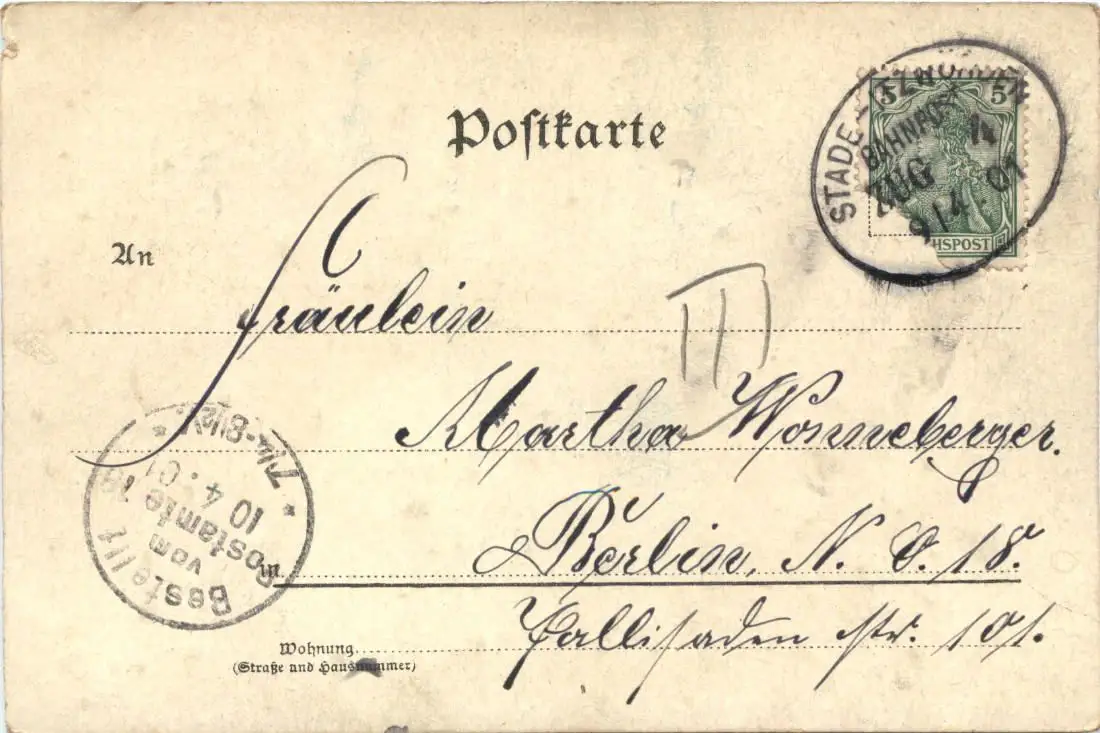 Postkarte
5 5
STADE - ITZWÖRDEN
BAHNPOST
ZUG 14
9/4 01
HSPOST
An
Fräulein
III
Martha Wonneberger.
in Berlin, N. O. 18.
Pallisaden str. 101.
Wohnung
(Straße und Hausnummer)
Bestellt
vom
Postamte 18
10 4.01